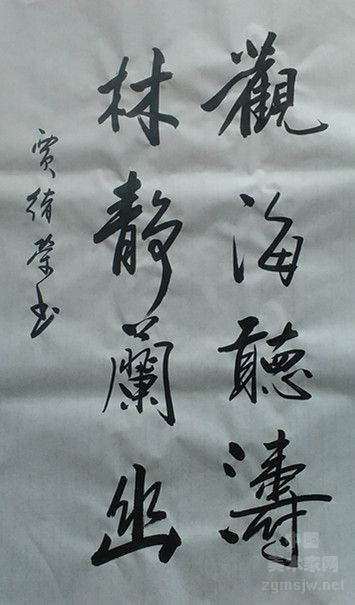 觀海聽濤
林靜蘭幽
賈緒榮书
中国
美术家网
zgmsjw.net